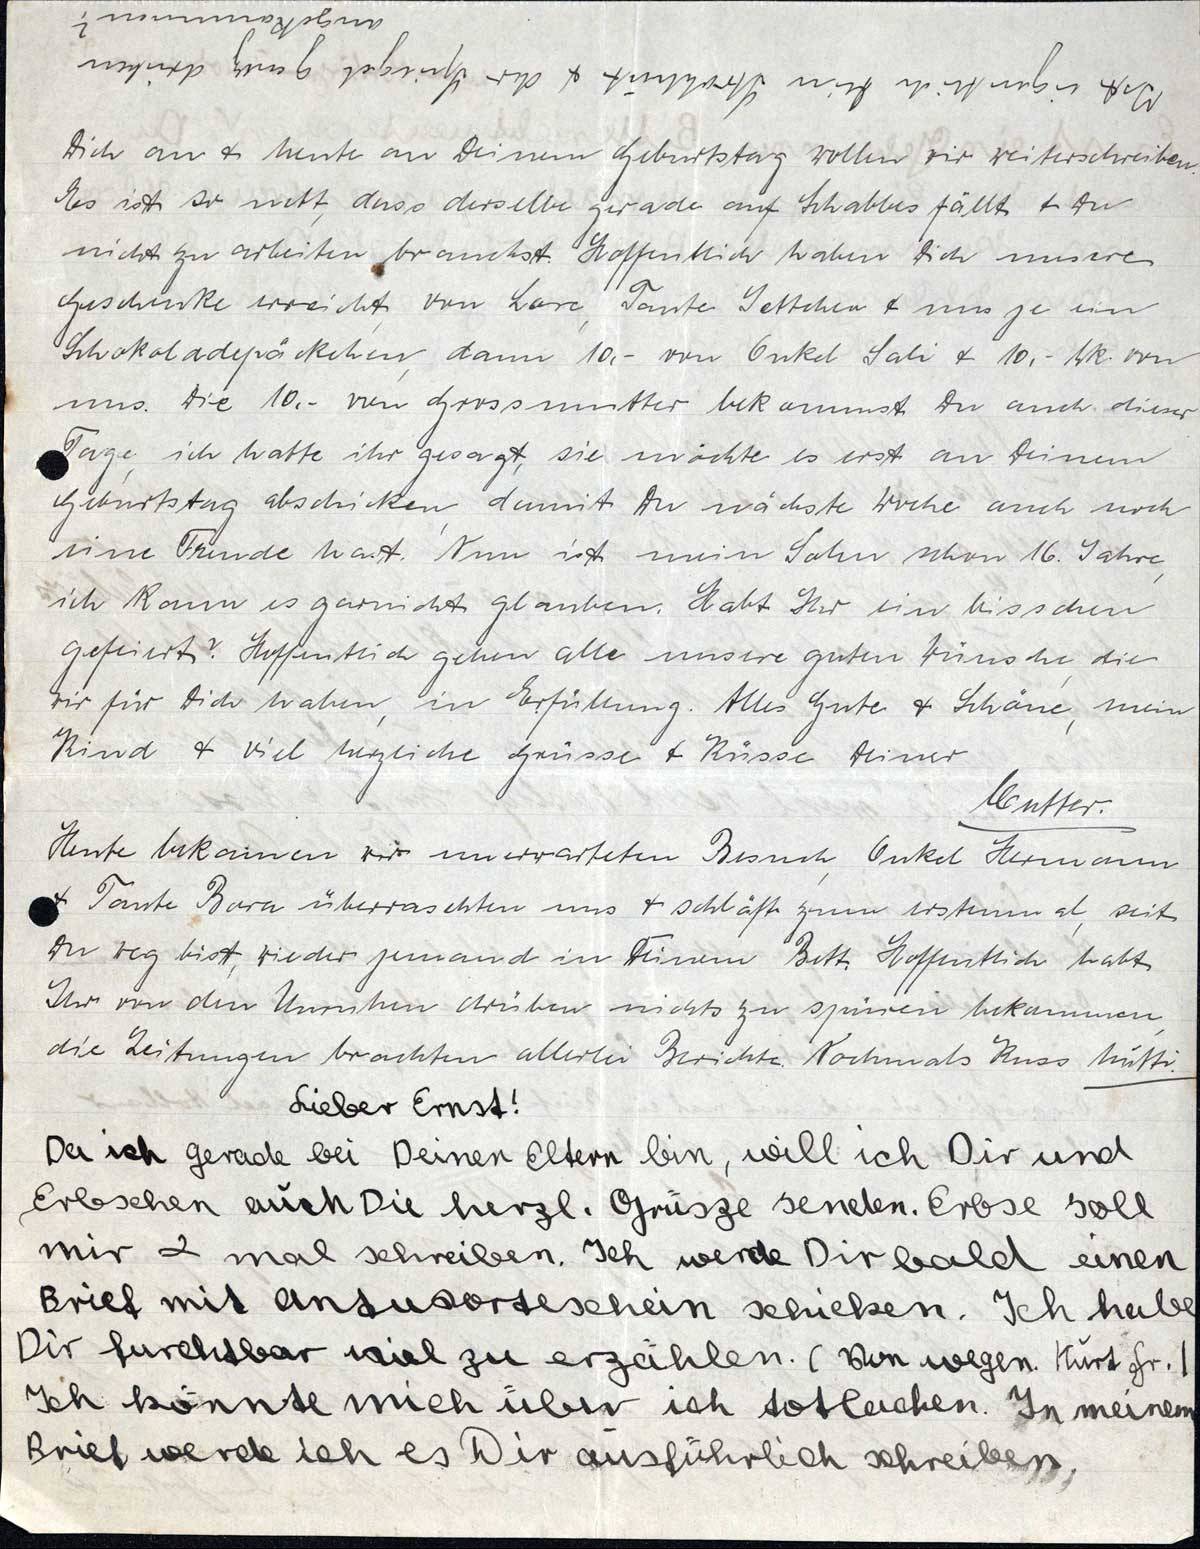 Ist eigentlich Dein Strohhut & der Spiegel ganz drüben
angekommen?
Dich an & heute an Deinem Geburtstag wollen wir weiterschreiben.
Es ist so nett, dass derselbe gerade auf Schabbes fällt & Du
nicht zu arbeiten brauchst. Hoffentlich haben Dich unsere
Geschenke erreicht, von Lore, Tante Settchen & uns je ein
Schokoladepäckchen, dann 10,- von Onkel Sali & 10,- Mk. von
uns. Die 10.- von Grossmutter bekommst Du auch dieser
Tage, ich hatte ihr gesagt, sie möchte es erst an Deinem
Geburtstag abschicken, damit Du nächste Woche auch noch
eine Freude hast. Nun ist mein Sohn schon 16. Jahre,
ich kann es garnicht glauben. Habt Ihr ein bisschen
gefeiert? Hoffentlich gehen alle unsere guten Wünsche, die
wir für Dich haben, in Erfüllung. Alles Gute & Schöne, mein
Kind & viel herzliche Grüsse & Küsse Deiner
Mutter.
Heute bekamen wir unerwarteten Besuch, Onkel Hermann
& Tante Bora überraschten uns & schläft zum erstenmal, seit
Du weg bist, wieder jemand in Deinem Bett. Hoffentlich habt
Ihr von den Unruhen drüben nichts zu spüren bekommen,
die Zeitungen brachten allerlei Berichte. Nochmals Kuss Mutti.
Lieber Ernst!
Da ich gerade bei Deinen Eltern bin, will ich Dir und
Erbschen auch Die herzl. Grüsze senden. Erbse soll
mir 2 mal schreiben. Ich werde Dir bald einen
Brief mit Antwortschein schicken. Ich habe
Dir furchtbar viel zu erzählen. (Von wegen. Kurt Fr.)
Ich könnte mich über ich totlachen. In meinem
Brief werde ich es Dir ausführlich schreiben,